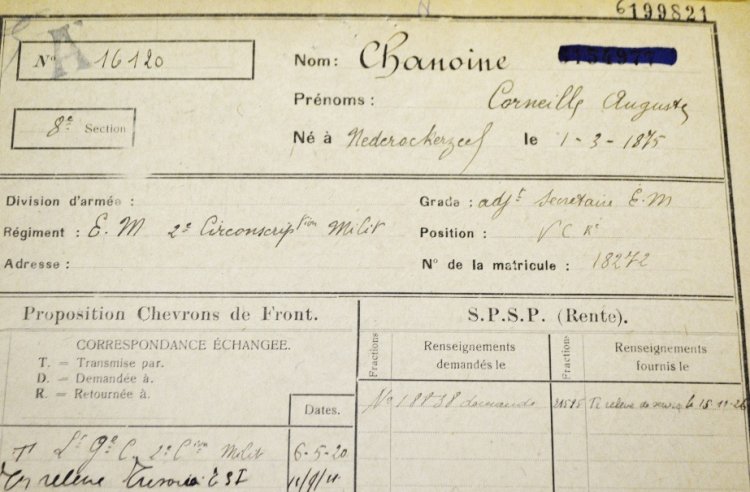 6199821
A
Nº 16120
8e Section
Nom: Chanoine
Prénoms: Corneille Auguste
Né à Nederockerzeel le 1-3-1875
Division d'armée :
Régiment : E. M 2e Circonscription Milit
Adresse :
Grade : adjt Secrétaire E. M
Position :
Nº de la matricule : 18272
Proposition Chevrons de Front.
CORRESPONDANCE ÉCHANGÉE.
T. = Transmise par.
D. = Demandée à.
R. = Retournée à.
Dates.
S.P.S.P. (Rente).
Fractions
Renseignements
demandés le
Fraction-
Renseignements
fournis le
No 18838 demande
le 15-11-
Milit 6-5-20
relevé